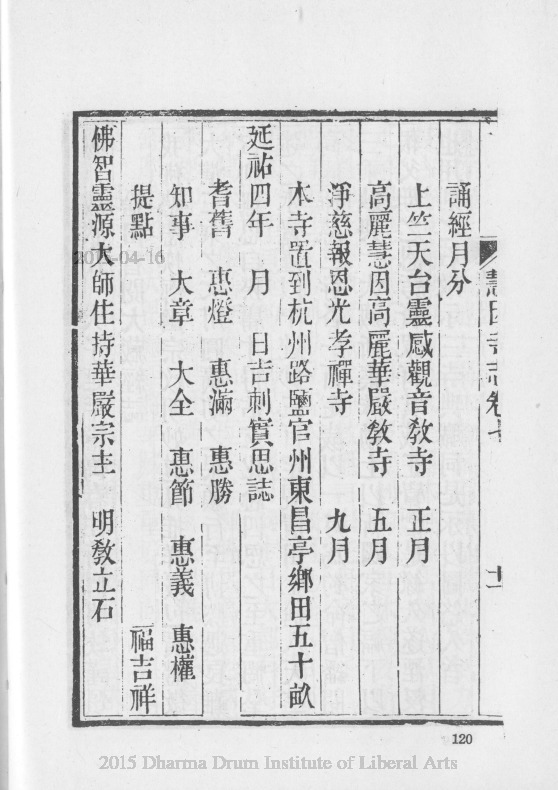 慧因寺志卷七
十一
誦經月分
上竺天台靈感觀音教寺 正月
高麗慧因高麗華嚴教寺 五月
淨慈報恩光孝禪寺 九月
本寺置到杭州路鹽官州東昌亭鄉田五十畝
延祐四年 月 日吉剌實思誌
耆舊 惠燈 惠滿 惠勝
知事 大章 大全 惠節 惠義 惠權
提點 福吉祥
佛智靈源大師住持華嚴宗主 明教立石
120
2015 Dharma Drum Institute of Liberal Arts